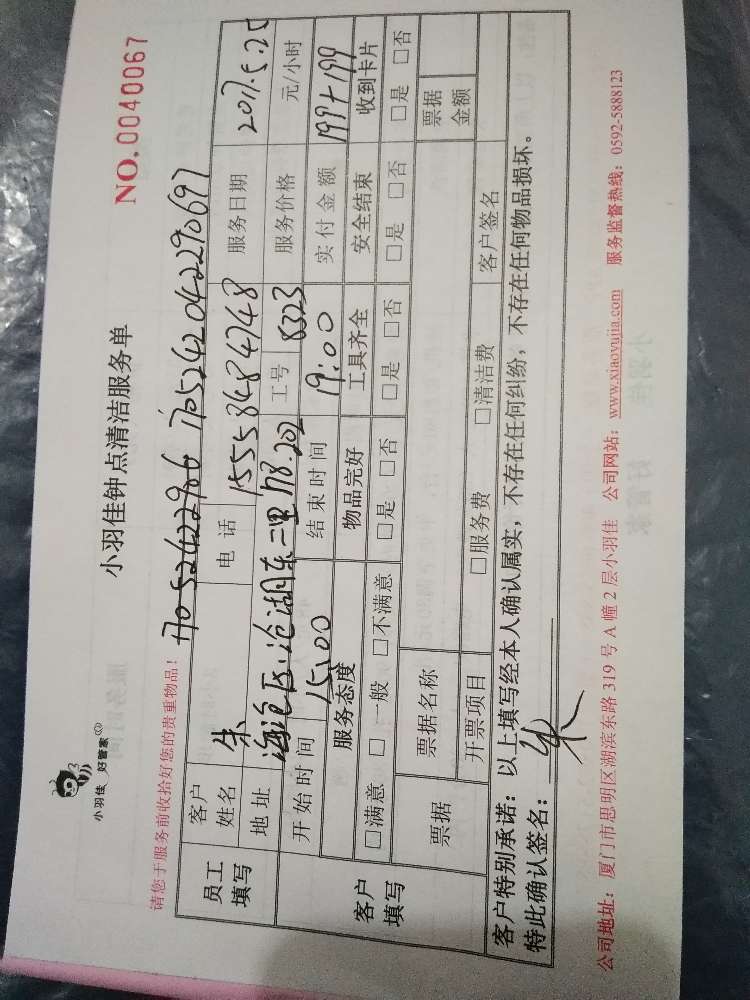 小羽佳 好管家
小羽佳钟点清洁服务单
NO.0040067
请您于服务前收拾好您的贵重物品!
17052422906 1705242042290697
员工填写 客户姓名 朱 电话 15558484748 服务日期 2017.5.25
地址 海沧区沧湖东二里78.202 工号 8323 服务价格 元/小时
开始时间 15:00 结束时间 19:00 实付金额 199+199
客户填写 服务态度 物品完好 工具齐全 安全结束 收到卡片
□满意 □一般 □不满意 □是 □否 □是 □否 □是 □否 □是 □否
票据 票据名称 票据金额
开票项目 □服务费 □清洁费 客户签名
客户特别承诺:以上填写经本人确认属实,不存在任何纠纷,不存在任何物品损坏。
特此确认签名:朱
公司地址:厦门市思明区湖滨东路319号A幢2层小羽佳 公司网站:www.xiaoyujia.com 服务监督热线:0592-5888123